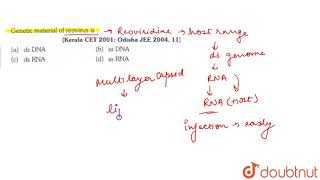 Genetic material of reovirus is → Reoviridine → host range
[Kerala CET 2001; Odisha JEE 2004, 11]
(a) ds DNA
(b) ss DNA
(c) ds RNA
(d) ss RNA
ds genome
RNA
RNA (Host)
injection → easily
multilayer capsid
li
doubtnut